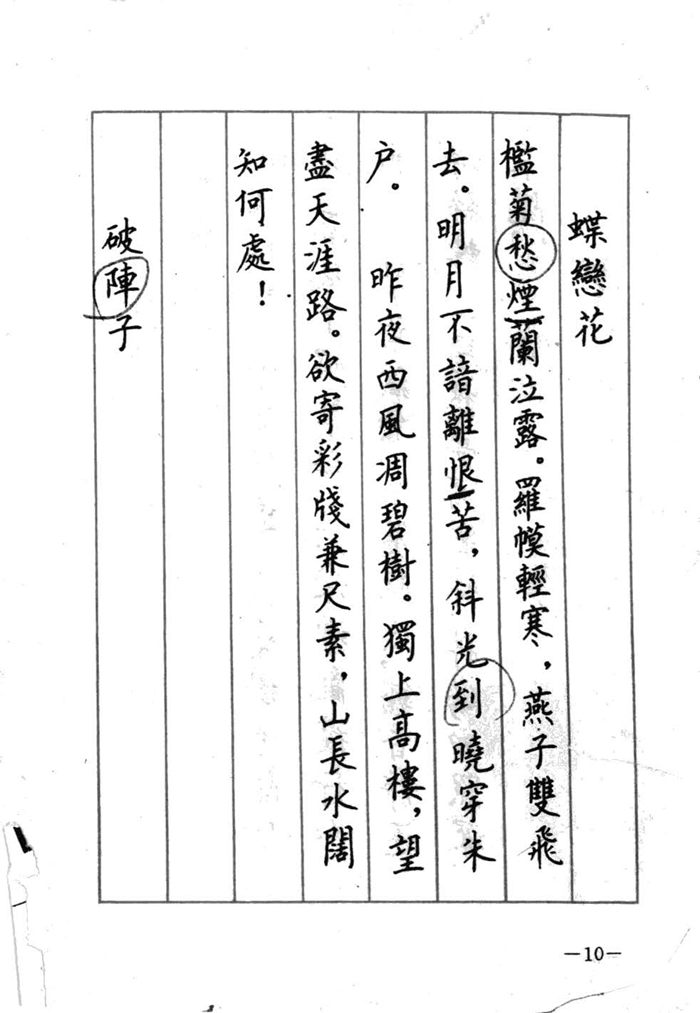 蝶戀花
檻菊愁煙蘭泣露。羅幙輕寒，燕子雙飛
去。明月不諳離恨苦，斜光到曉穿朱
户。　昨夜西風凋碧樹。獨上高樓，望
盡天涯路。欲寄彩牋兼尺素，山長水闊
知何處！
破陣子
—10—